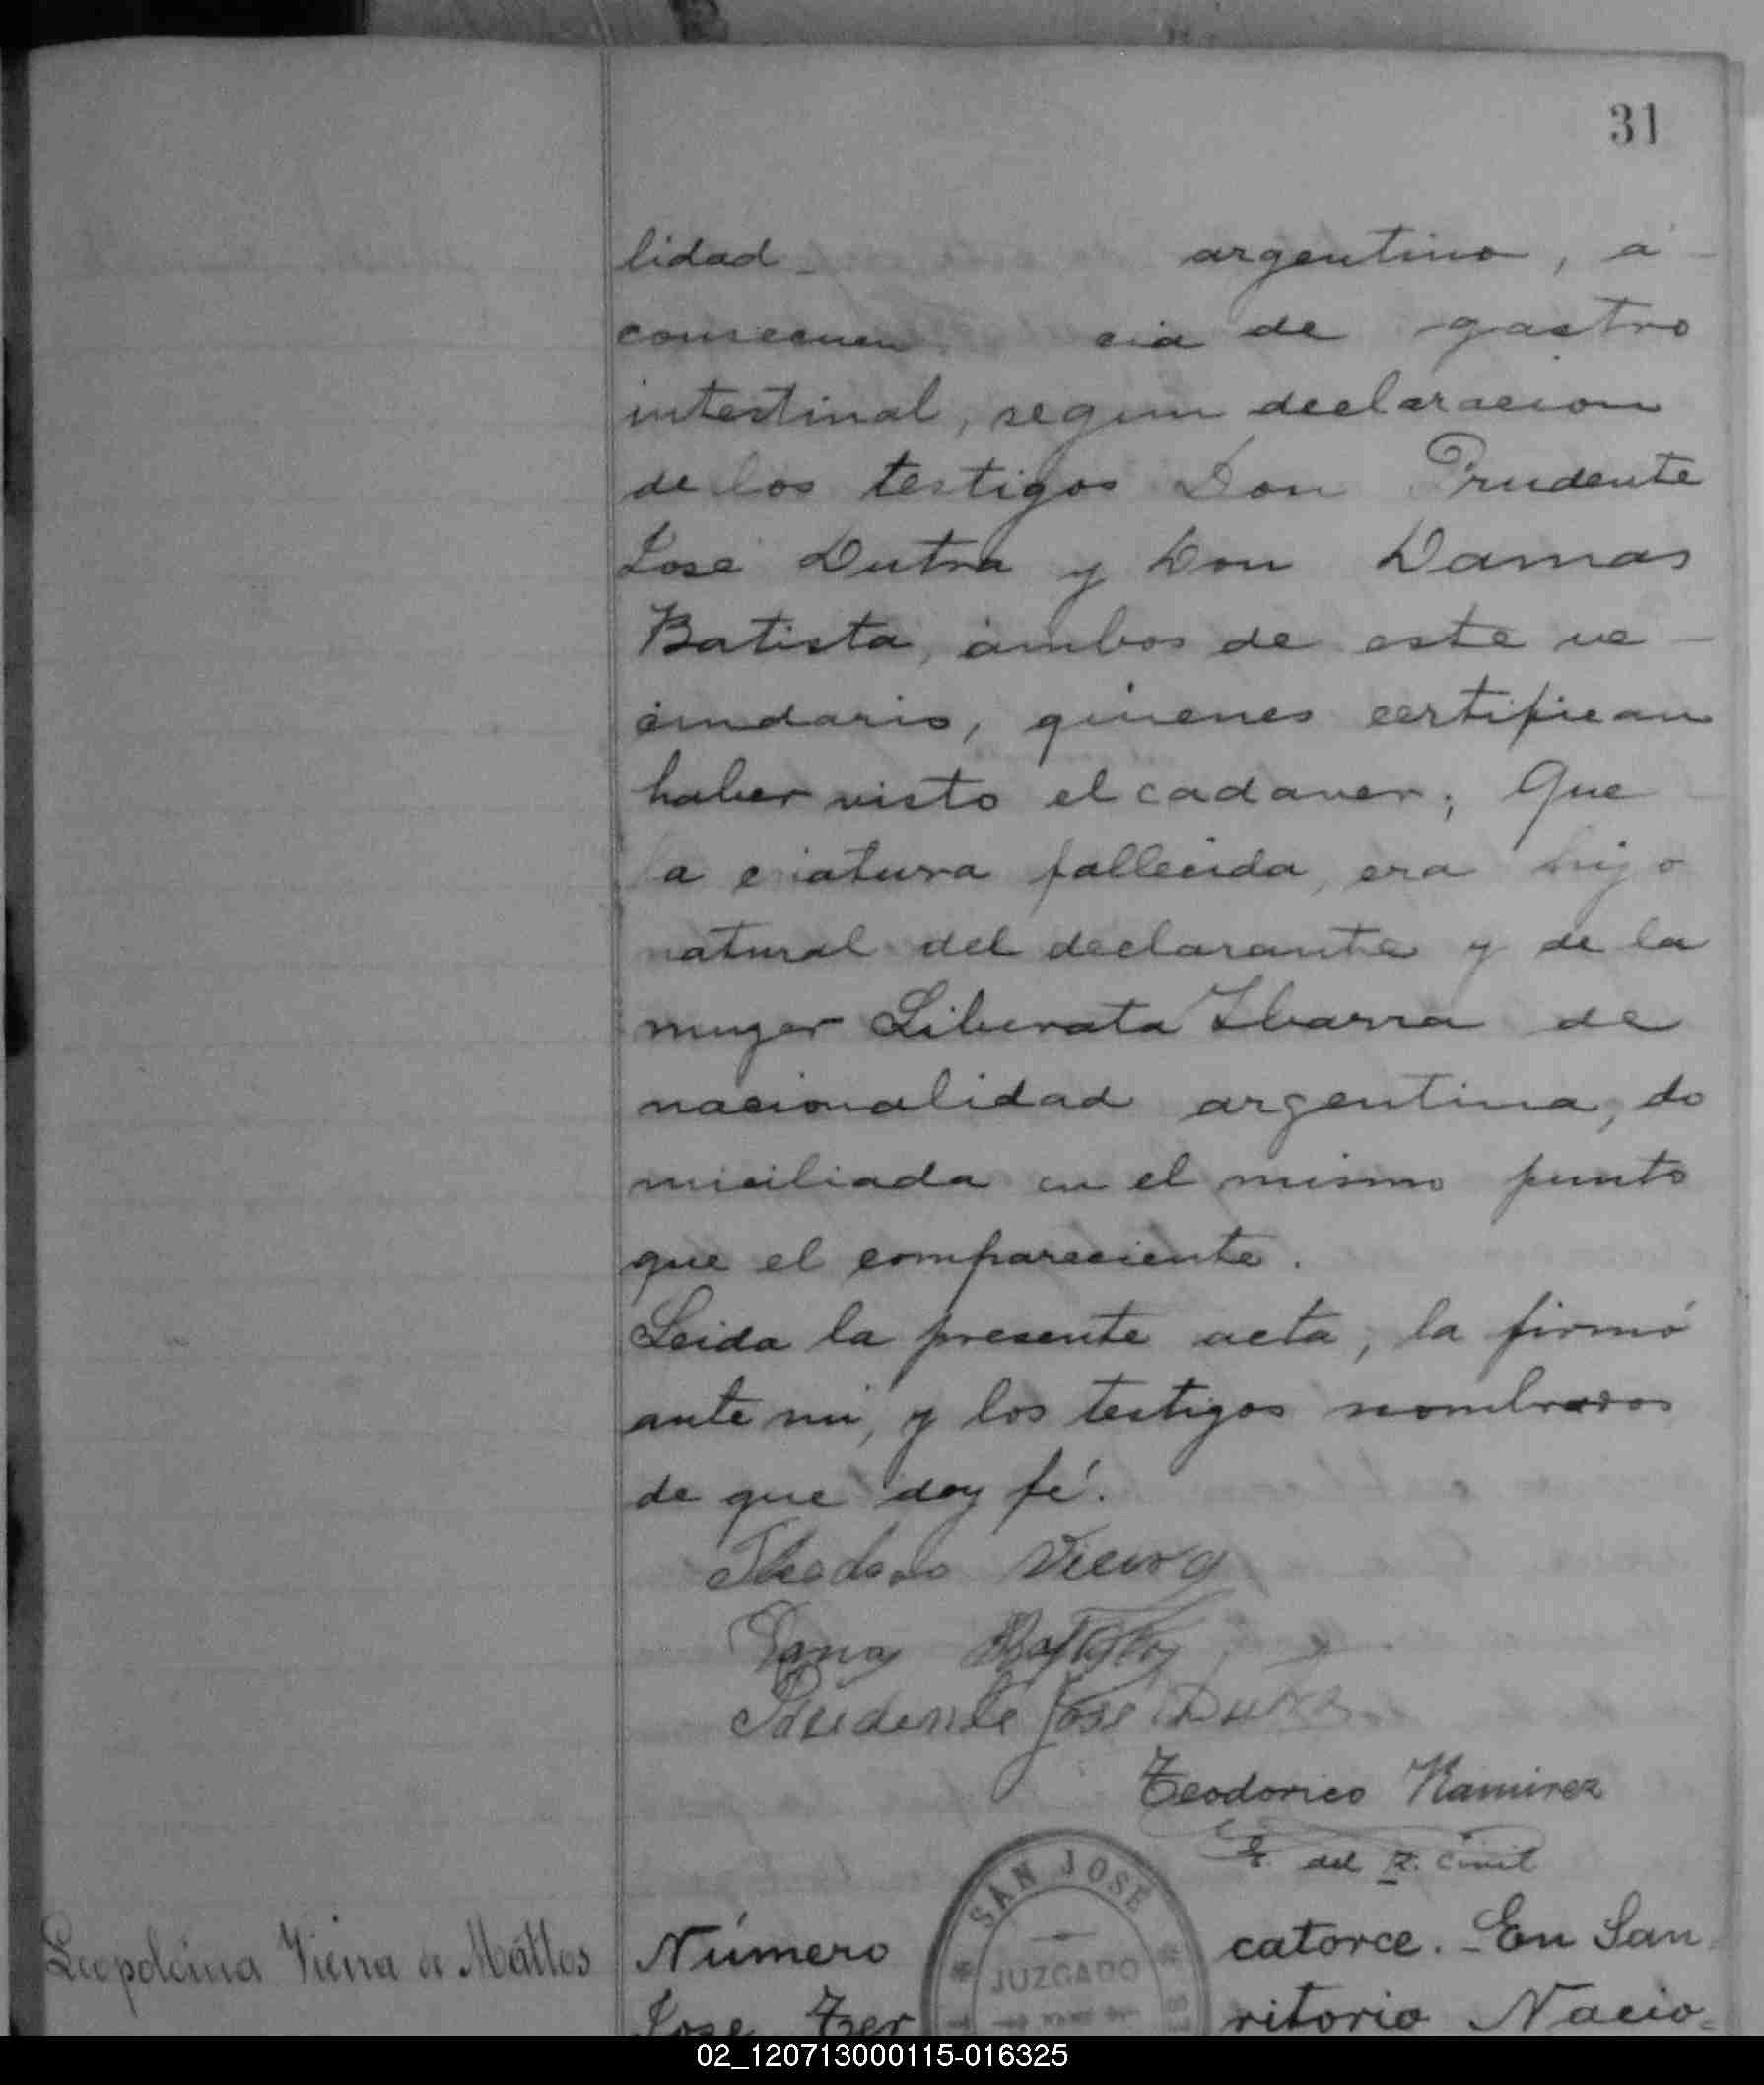 31
lidad argentino, a
consecuen cia de gastro
intestinal, segun declaracion
de los testigos Don Prudente
José Dutra y Don Damas
Batista, ambos de este ve-
cindario, quienes certifican
haber visto el cadaver; Que
la criatura fallecida, era hijo
natural del declarante y de la
muger Liberata Ibarra de
nacionalidad argentina, do
miciliada en el mismo punto
que el compareciente.
Leida la presente acta, la firmó
ante mi, y los testigos nombrados
de que doy fé.
Theodoro Vieira
Batista
Prudente José Dutra
Teodorico Ramirez
E. del R. Civil
SAN JOSE
JUZGADO
Leopoldina Vieira de Mattos
Número catorce. - En San
Jose Ter ritorio Nacio=
02_120713000115-016325